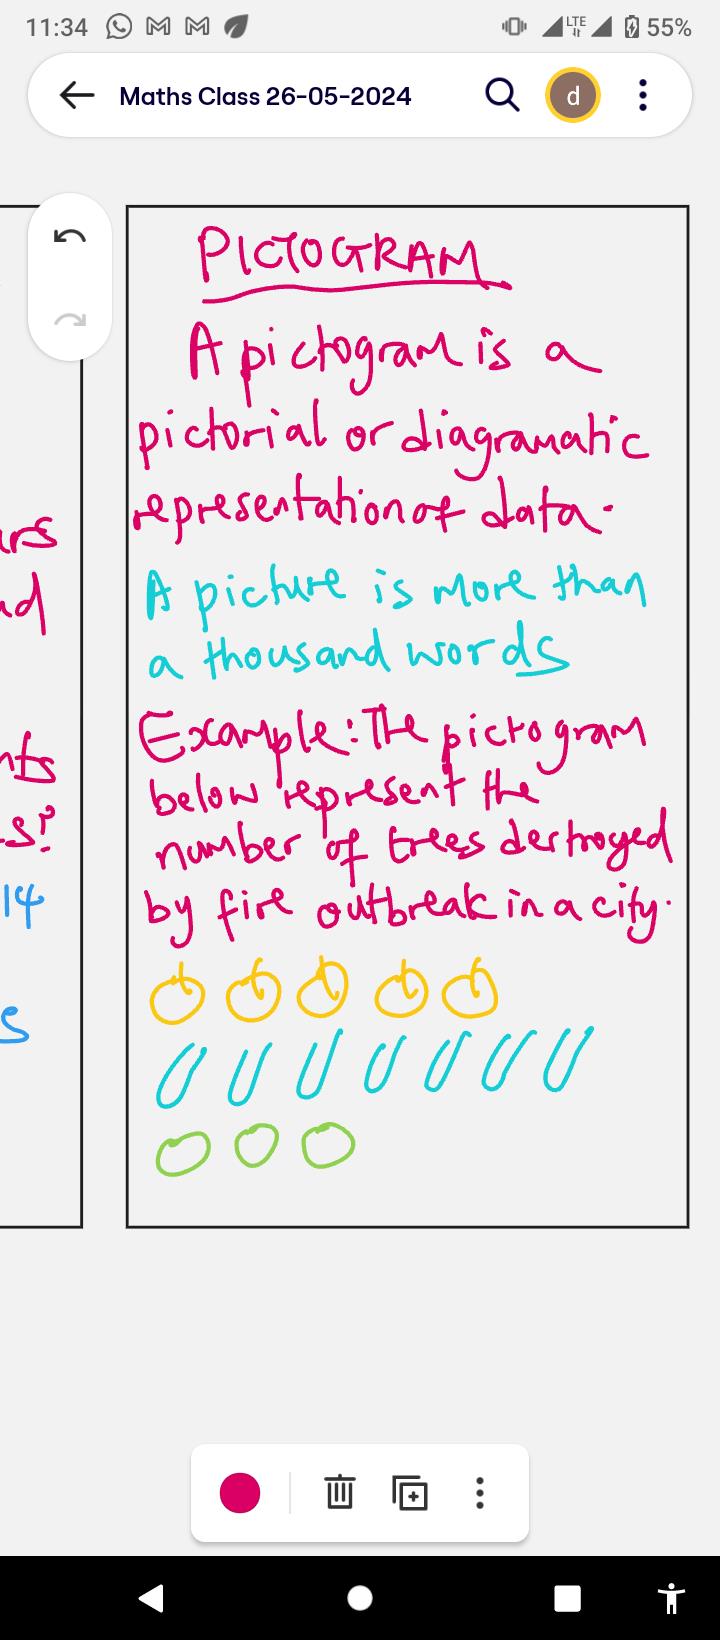 11:34 LTE 55%
Maths Class 26-05-2024 d
PICTOGRAM
A pictogram is a
pictorial or diagramatic
representation of data.
A picture is more than
a thousand words
Example: The pictogram
below represent the
number of trees destroyed
by fire outbreak in a city.
urs
nd
nts
s?
14
s